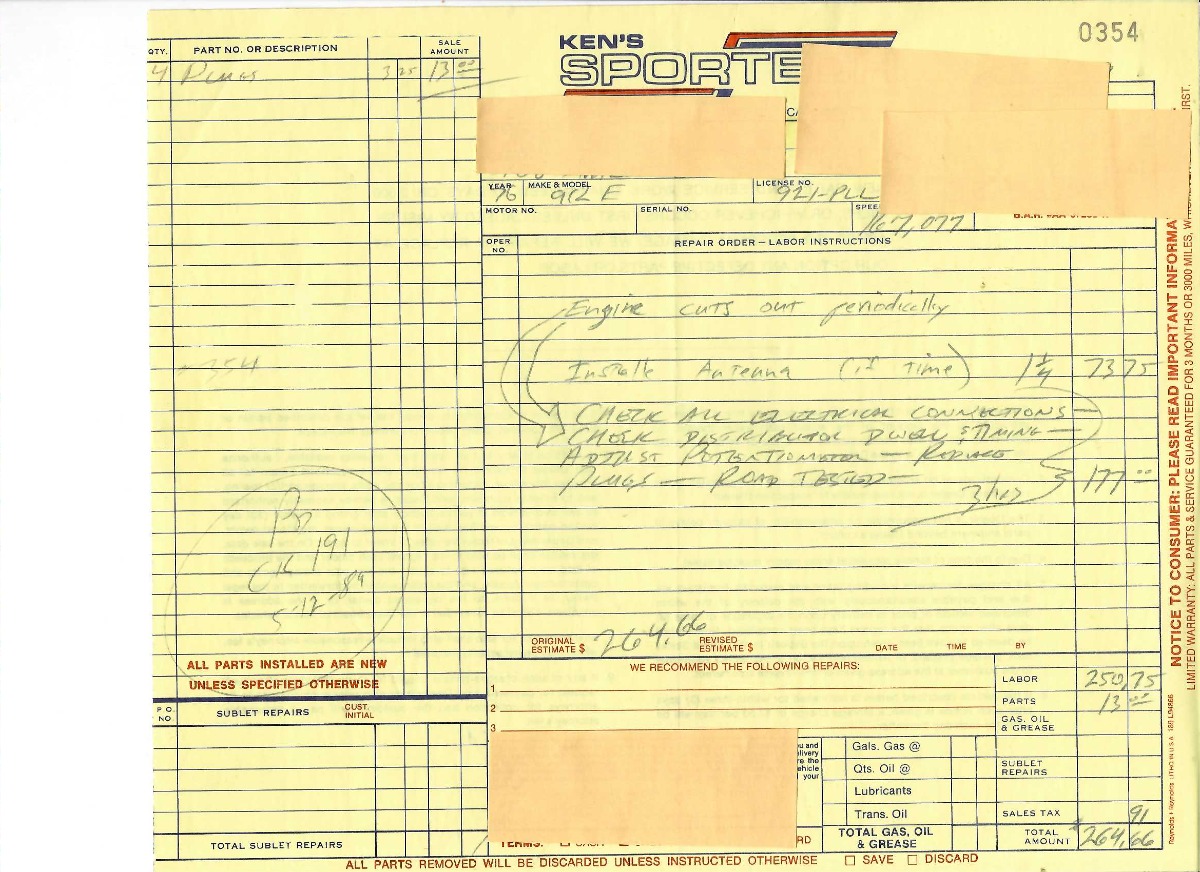 0354
KEN'S
SPORTE
QTY. PART NO. OR DESCRIPTION SALE AMOUNT
4 Plugs 3 25 13 00
YEAR 76 MAKE & MODEL 912 E LICENSE NO. 921-PLL
MOTOR NO. SERIAL NO. SPEE 167,077
OPER NO. REPAIR ORDER – LABOR INSTRUCTIONS
Engine cuts out periodically
354
Installe Antenna (if time) 1 1/4 73 75
CHECK ALL ELECTRICAL CONNECTIONS —
CHECK DISTRIBUTOR DWELL & TIMING —
ADJUST POTENTIOMETER — REPLACE
PLUGS — ROAD TESTED — 177 00
3 hrs
PD
CK 191
5-12-89
ORIGINAL ESTIMATE $ 264.66 REVISED ESTIMATE $ DATE TIME BY
ALL PARTS INSTALLED ARE NEW
UNLESS SPECIFIED OTHERWISE
WE RECOMMEND THE FOLLOWING REPAIRS:
1
2
3
P.O. NO. SUBLET REPAIRS CUST. INITIAL
TOTAL SUBLET REPAIRS
LABOR 250,75
PARTS 13 00
GAS, OIL & GREASE
SUBLET REPAIRS
SALES TAX 91
TOTAL AMOUNT $264,66
Gals. Gas @
Qts. Oil @
Lubricants
Trans. Oil
TOTAL GAS, OIL & GREASE
TERMS:
ALL PARTS REMOVED WILL BE DISCARDED UNLESS INSTRUCTED OTHERWISE ☐ SAVE ☐ DISCARD
NOTICE TO CONSUMER: PLEASE READ IMPORTANT INFORMA
LIMITED WARRANTY: ALL PARTS & SERVICE GUARANTEED FOR 3 MONTHS OR 3000 MILES, W IRST.